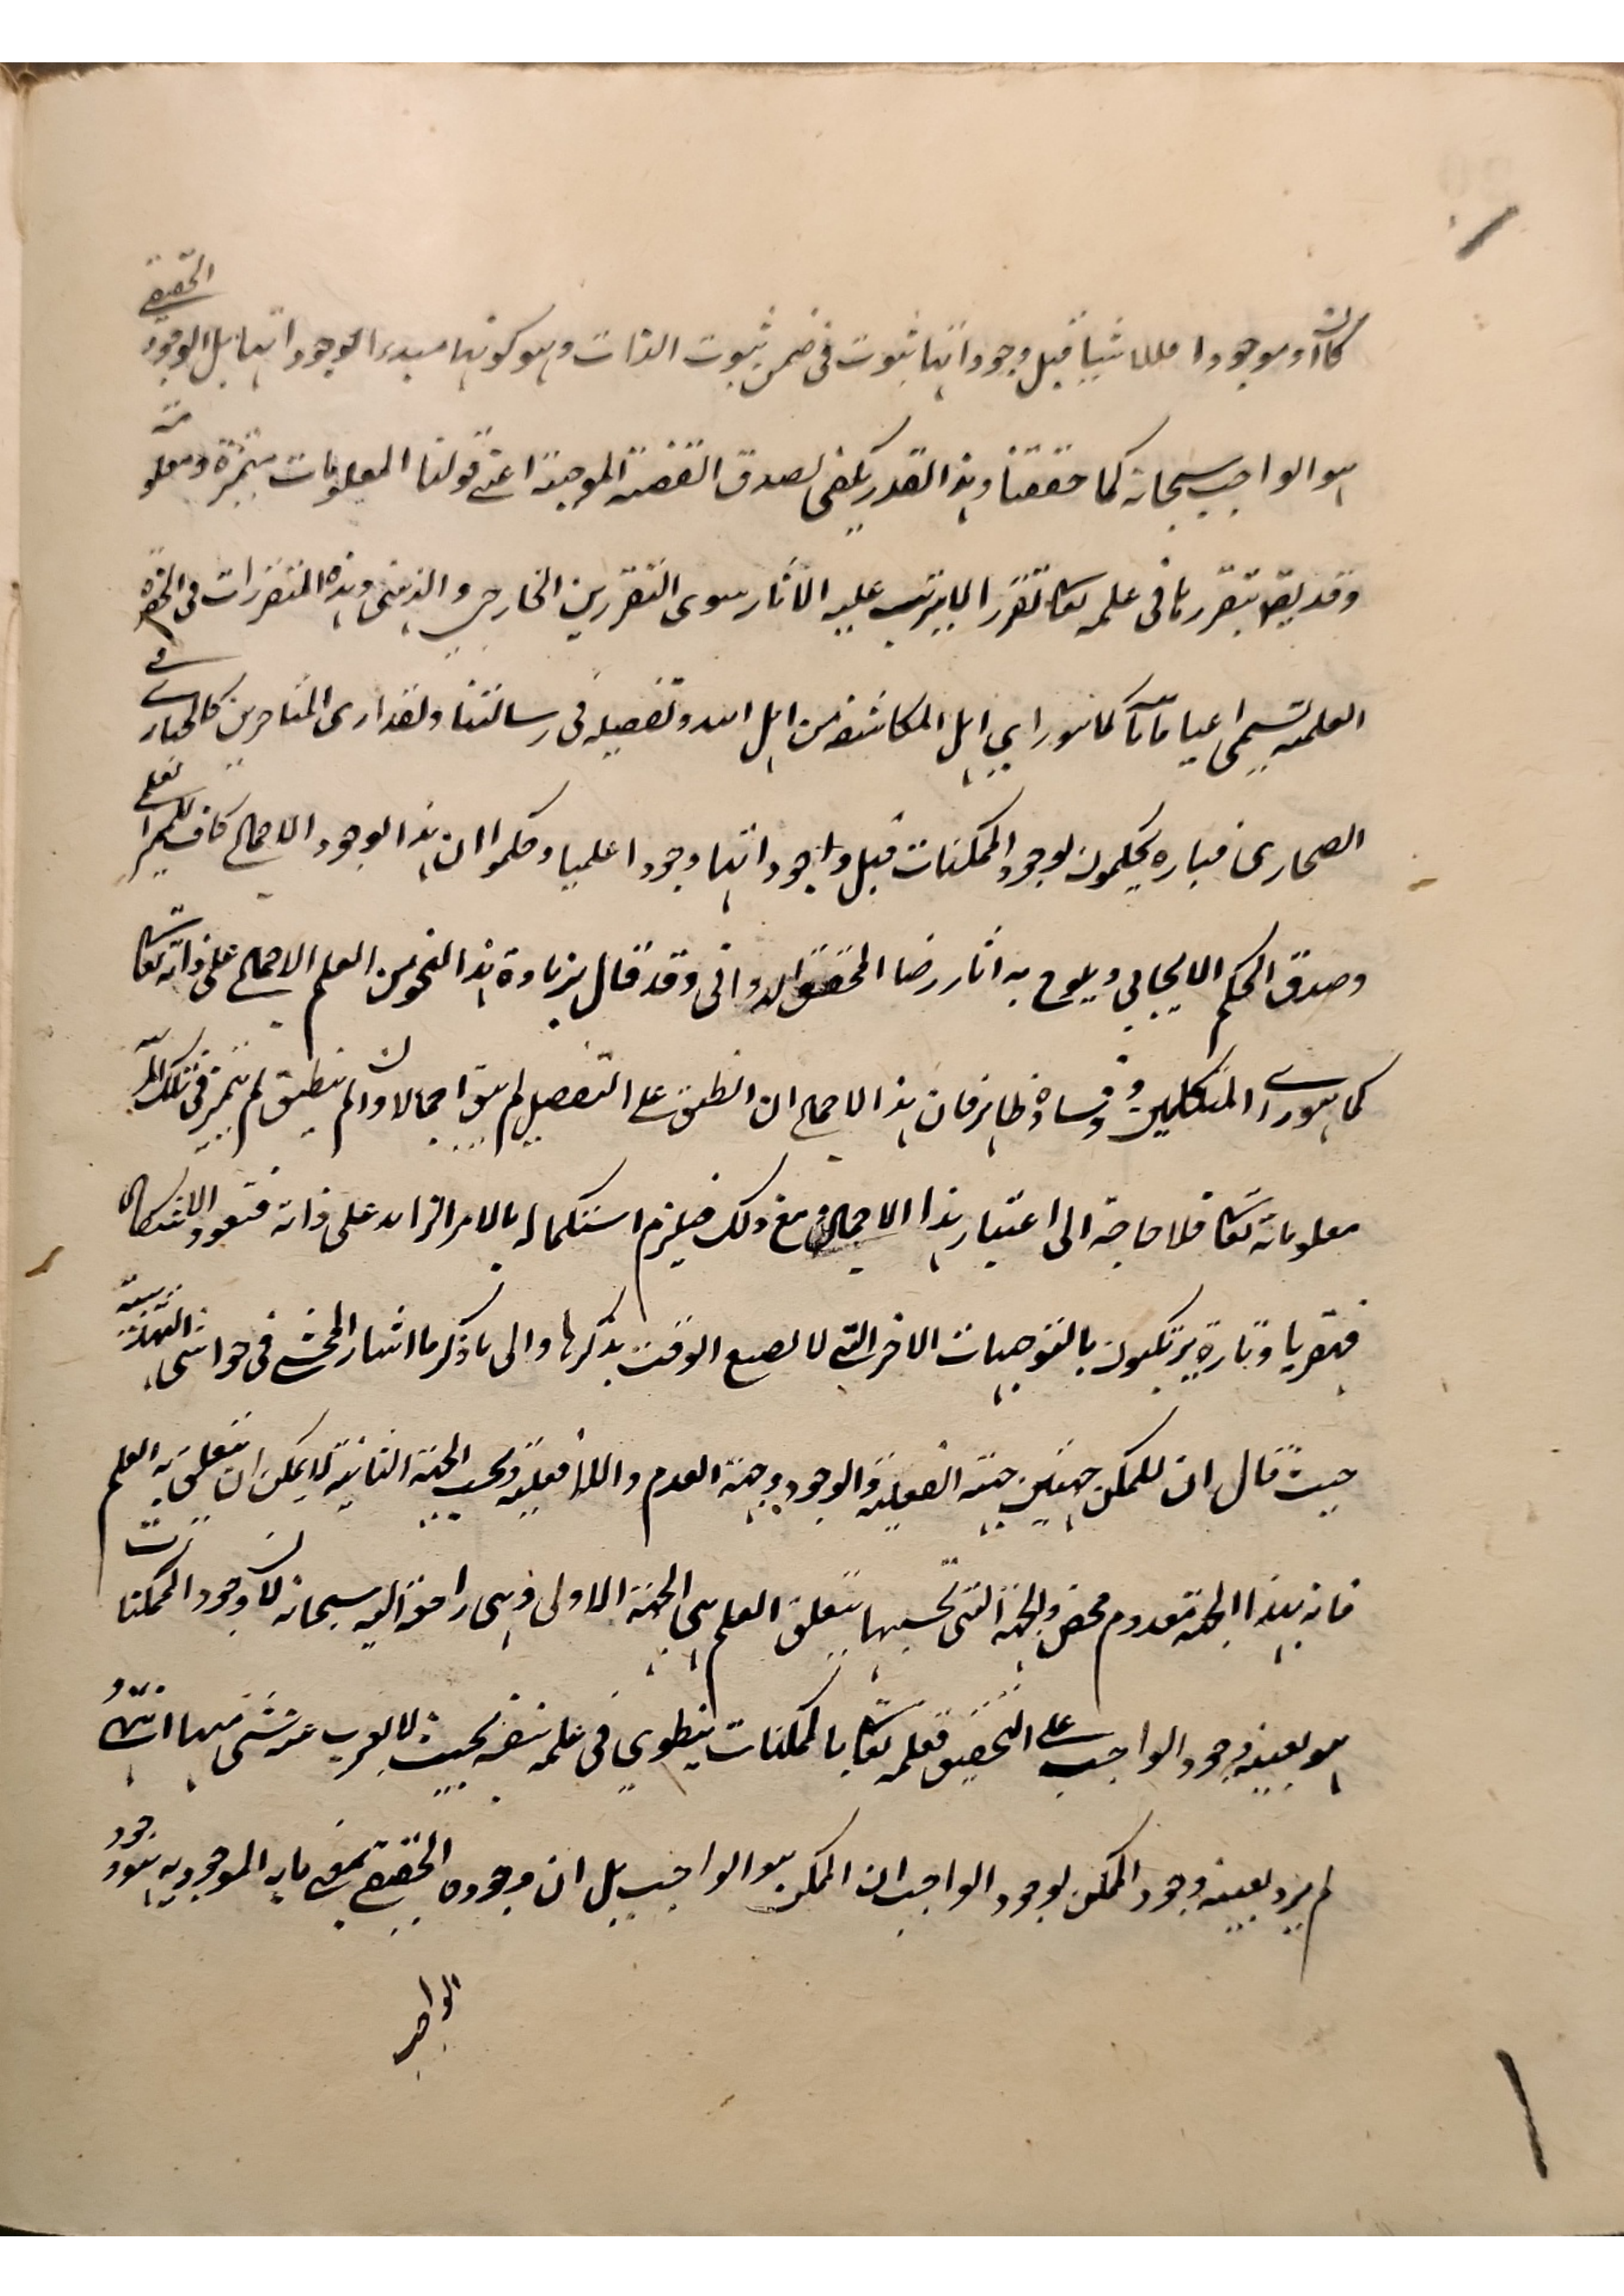 كان او موجودا فللاشياء قبل وجوداتها ثبوت في ضمن ثبوت الذات وهو كونها مبدءا لوجوداتها بل الوجود الحقيقي
هو الواجب سبحانه كما حققنا وهذا القدر يكفي لصدق القضية الموجبة اعني قولنا المعلومات متميزة ومعلومة
وقد يقه بتقررها في علمه تعا تقررا لا يترتب عليه الآثار سوى التقررين الخارجي والذهني وهذه المتقررات في الحضرة
العلمية تسمى اعيانا ثابتا كما هو راي اهل المكاشفة من اهل الله وتفصيله في رسالتنا ولقد ارى المتاخرين كالحبارى في
الصحارى فتاره يحكمون بوجود الممكنات قبل وجوداتها وجودا علميا وحكموا ان هذا الوجود الاجمالي كاف للتميز العلمي
وصدق الحكم الايجابي ويلوح به آثار رضا المحقق الدواني وقد قال بزيادة هذا النحو من العلم الاجمالي على ذاته تعالى
كما هو راي المتكلمين وفساده ظاهر فان هذا الاجمال ان انطبق على التفصيل لم يبق اجمالا وان لم ينطبق لم يتميز في تلك المرتبة
معلوماته تعا فلا حاجة الى اعتبار هذا الاجمال ومع ذلك فيلزم استكماله بالامر الزايد على ذاته فتعود الاشكال
فبقريا وتارة يرتكبون بالتوجيهات الاخر التي لا يسع الوقت بذكرها والى ما ذكرنا اشار المحشي في حواشي التهذيبية
حيث قال ان للممكن جهتين جهة الفعلية والوجود وجهة العدم واللافعلية وبحسب الجهة الثانية لا يمكن ان يتعلق به العلم
فانه بهذا الجهة معدوم محض والجهة التي بحسبها يتعلق العلم هي الجهة الاولى وهي راجعة اليه سبحانه لان وجود الممكنات
هو بعينه وجود الواجب على التحقيق فعلمه تعا بالممكنات ينطوي في علمه بنفسه بحيث لا يعزب عنه شئ منها انتهى و
لم يرد بعينية وجود الممكن لوجود الواجب ان الممكن هو الواجب بل ان وجوده الحقيقي بمعنى ما به الموجودية هو وجود
الواجب